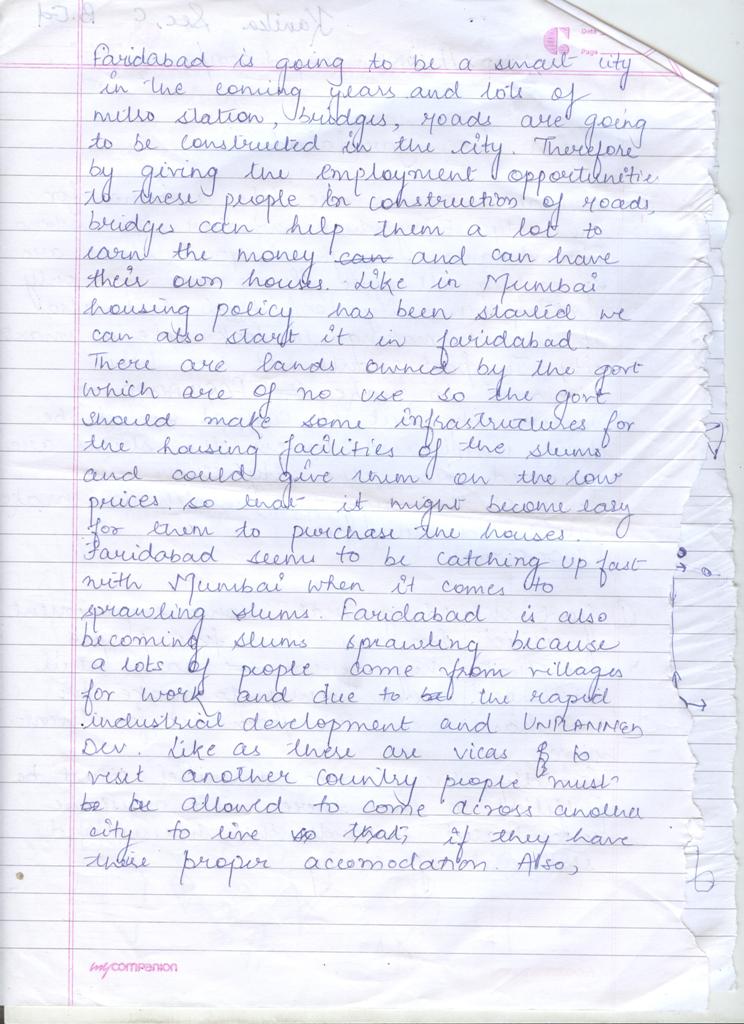 Faridabad is going to be a smart city
in the coming years and lots of
metro station, bridges, roads are going
to be constructed in the city. Therefore
by giving the employment opportunities
to these people in construction of roads,
bridges can help them a lot to
earn the money can and can have
their own houses. Like in Mumbai
housing policy has been started we
can also start it in faridabad.
There are lands owned by the govt
which are of no use so the govt
should make some infrastructures for
the housing facilities of the slums
and could give them on the low
prices. so that it might become easy
for them to purchase the houses.
Faridabad seems to be catching up fast
with Mumbai when it comes to
sprawling slums. Faridabad is also
becoming slums sprawling because
a lots of people come from villages
for work and due to the rapid
industrial development and UNPLANNED
Dev. Like as there are vicas to
visit another country people must
be be allowed to come across another
city to live so that, if they have
their proper accomodation. Also,
mycompanion
Date
Page